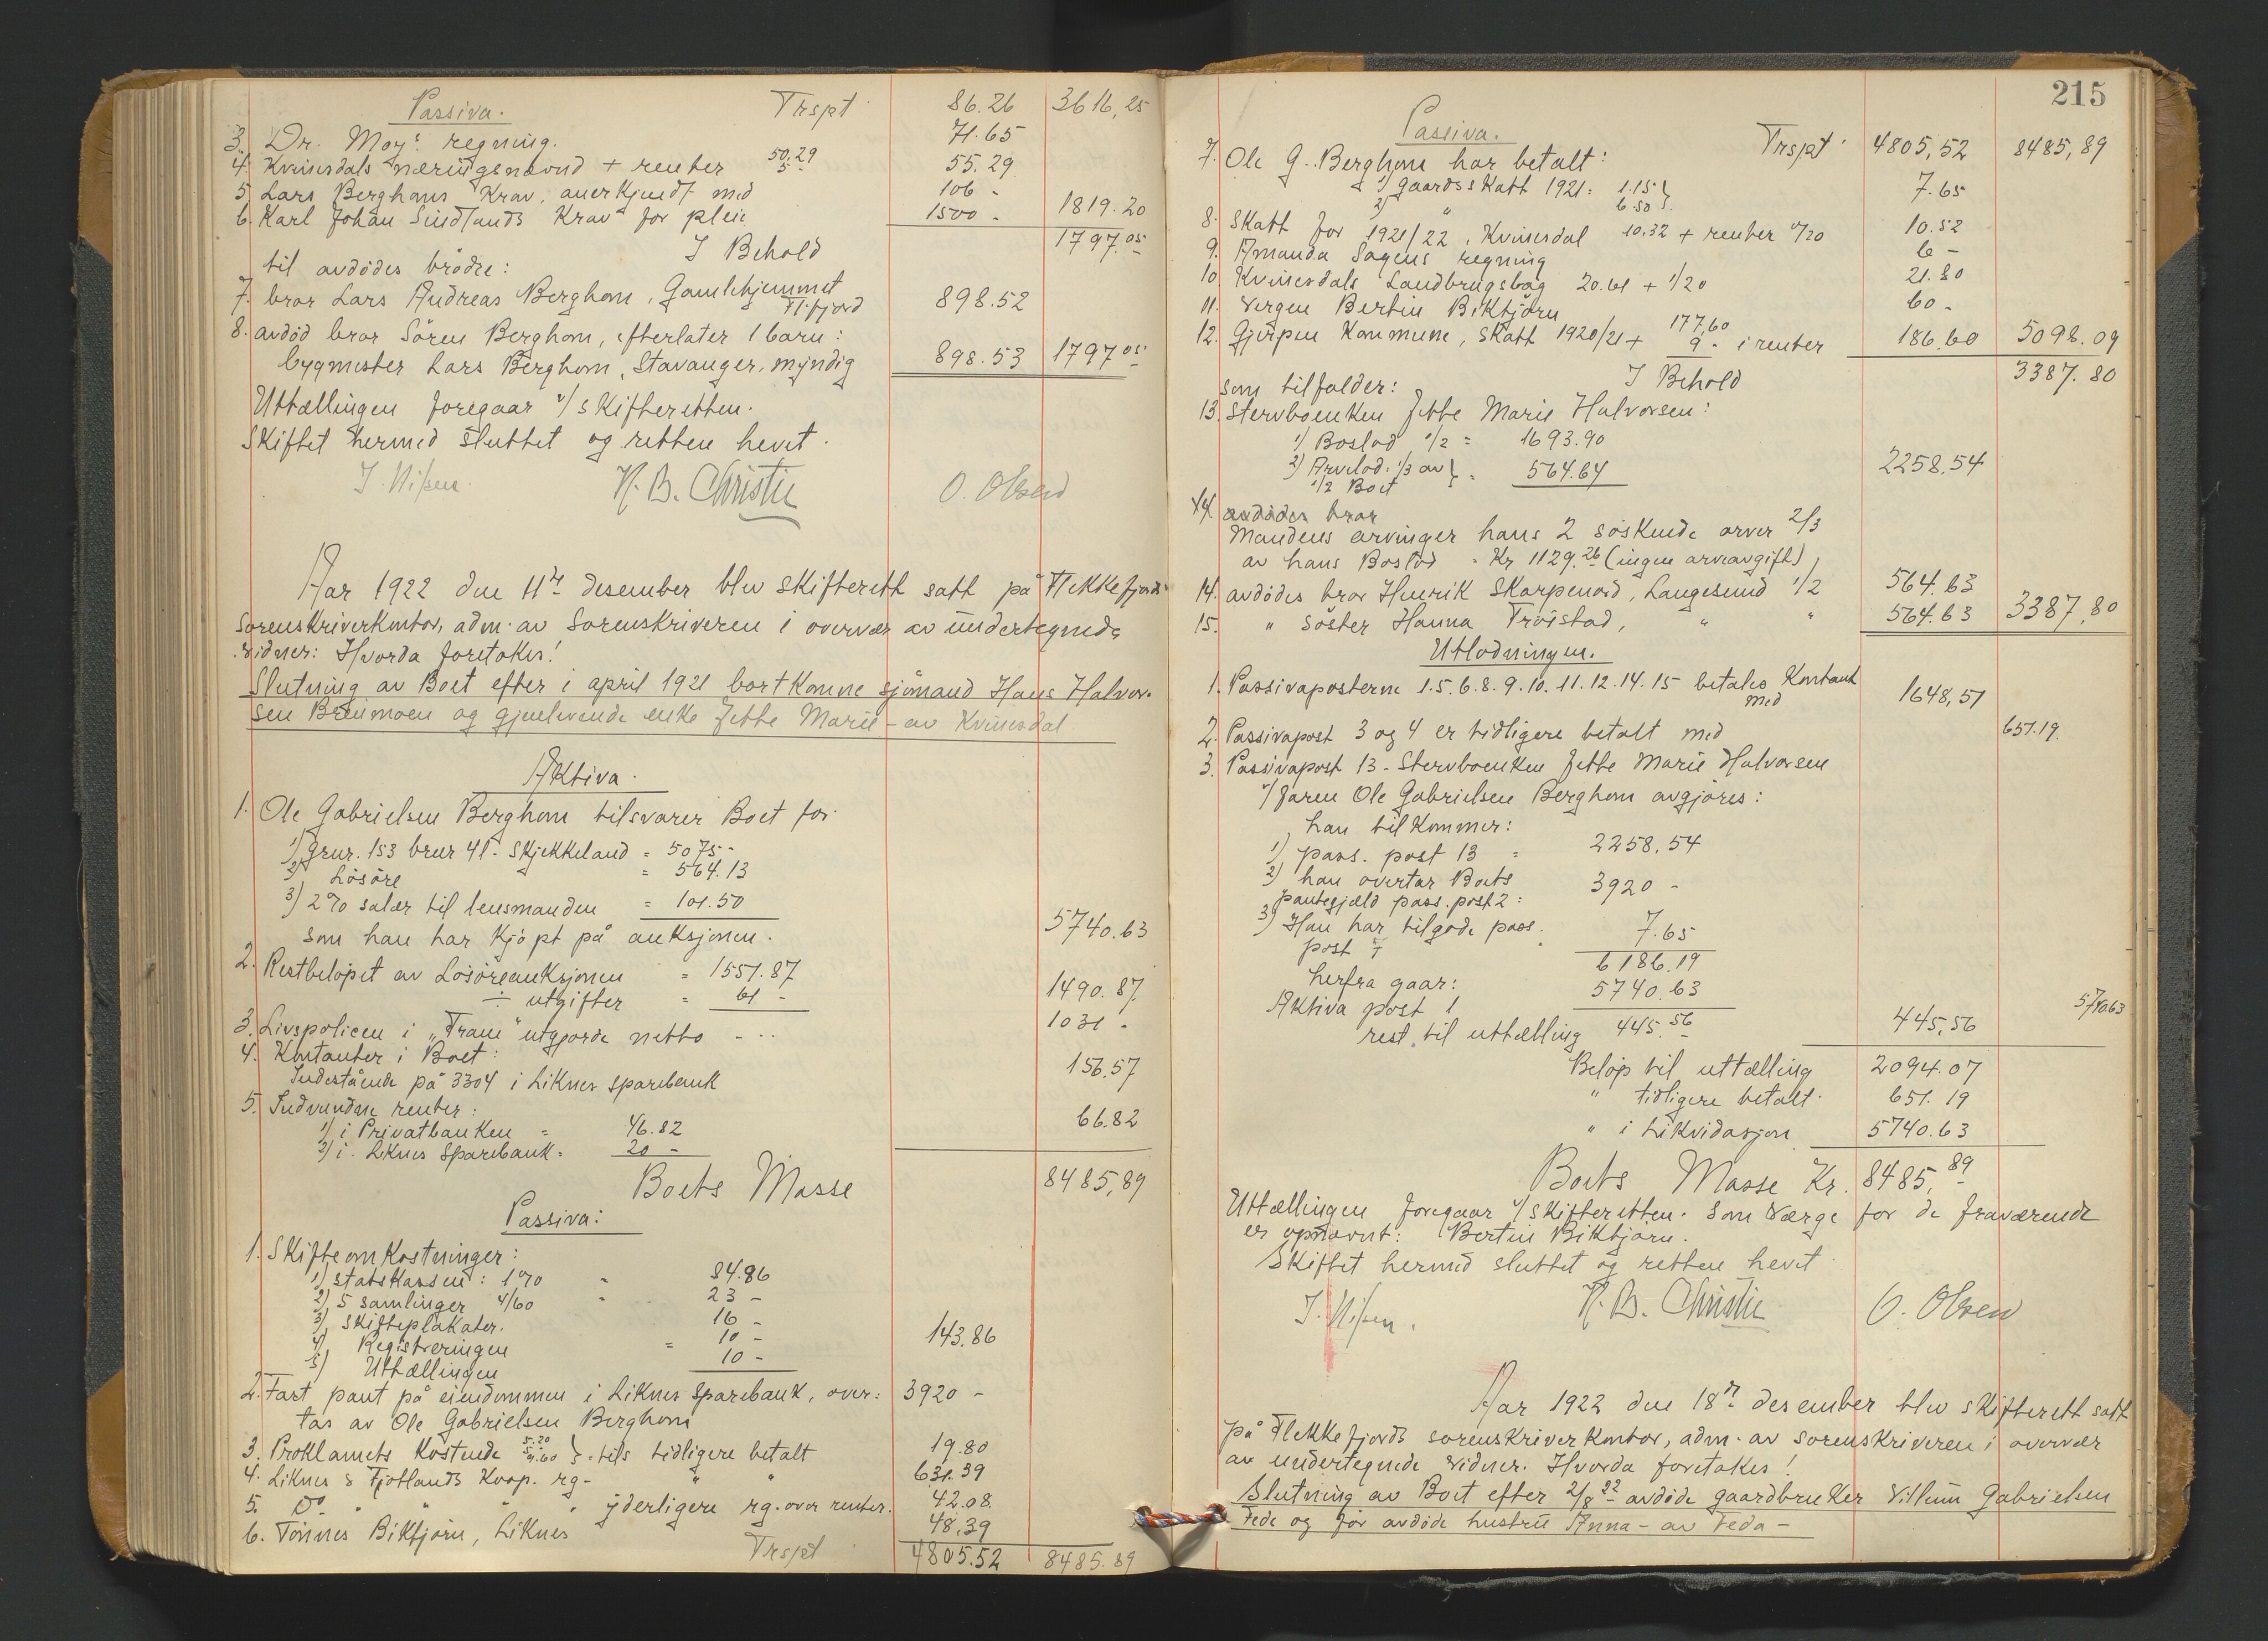 Passiva. Trspt 86.26 3616,25
3. Dr. Moys regning. 71.65
4. Kvinesdals næringsnævnd + renter 50.29 5- 55.29
5. Lars Berghoms Krav, anerkjendt med 106 -
6. Karl Johan Sindlands Krav for pleie 1500 - 1819.20
I Behold 1797.05
til avdödes brödre:
7. bror Lars Andreas Berghom, Gamlehjemmet Fl.fjord 898.52
8. avdöd bror Sören Berghom, efterlater 1 barn:
bygmester Lars Berghom, Stavanger, myndig 898.53 1797 05
Uttællingen foregaar v/ skifteretten.
Skiftet hermed sluttet og retten hevet.
J. Nilsen. N. B. Christie O. Olsen
Aar 1922 den 11te desember blev skifterett satt på Flekkefjords
Sorenskriverkontor, adm. av Sorenskriveren i overvær av undertegnede
vidner: Hvorda foretokes!
Slutning av Boet efter i april 1921 bortkomne sjömand Hans Halvor-
sen Breimoen og gjenlevende enke Jette Marie - av Kvinesdal.
Aktiva.
1. Ole Gabrielsen Berghom tilsvarer Boet for
1) grnr. 153 brnr 41 - Skjekkeland = 5075 -
2) Lösöre = 564.13
3) 2% salær til lensmanden = 101.50
som han har kjöpt på auksjonen. 5740.63
2. Restbelöpet av Lösöreauksjonen = 1551.87
÷ utgifter = 61 - 1490.87
3. Livspolicen i "Fram" utgjorde netto - ... 1031 -
4. Kontanter i Boet:
Indestående på 3304 i Liknes sparebank 156.57
5. Indvundne renter:
1) i Privatbanken = 46.82 66.82
2) i Liknes Sparebank = 20 -
Boets Masse 8485,89
Passiva:
1. Skifteomkostninger:
1) statskassen: 1% = 84.86
2) 5 samlinger 4/60 = 23 -
3) Skifteplakater. 16 -
4) Registreringen = 10 - 143.86
5) Uttællingen 10 -
2. Fast pant på eiendommen i Liknes Sparebank, over- 3920 -
tas av Ole Gabrielsen Berghom
3. Proklamets Kostende } tils tidligere betalt 19.80
4. Liknes & Fjotlands Koop. rg - " " 631.39
5. Do " " " " yderligere rg. over renter. 42.08
6. Tönnes Biktjörn, Liknes 48.39
Trspt 4805.52 8485.89
215
Passiva. Trspt 4805,52 8485,89
7. Ole G. Berghom har betalt:
1) gaardsskatt 1921: 1.15 } 7.65
2) " 6.50 }
8. Skatt for 1921/22, Kvinesdal 10.32 + renter 0/20 10.52
9. Amanda Sagens regning 6 -
10. Kvinesdals Landbrugslag 20.61 + 1/20 21.80
11. Vergen Bertin Biktjörn 60 -
12. Gjerpen Kommune, Skatt 1920/21 + 177,60 9 - i renter 186.60 5098.09
I Behold 3387.80
som tilfalder:
13. Stervboenken Jette Marie Halvorsen:
1) Boslod 1/2 = 1693.90
2) Arvelod: 1/3 av } = 564.64 2258.54
1/2 Boet
14. avdödes bror
Mandens arvinger hans 2 söskende arver 2/3
av hans Boslod = Kr 1129.26 (ingen arveavgift)
14. avdödes bror Henrik Skarpenord, Langesund 1/2 564.63
15. " söster Hanna Tröistad, " " 564.63 3387,80
Utlodningen.
1. Passivaposterne 1.5.6.8.9.10.11.12.14.15 betales Kontant med 1648,51
2. Passivapost 3 og 4 er tidligere betalt med 651.19.
3. Passivapost 13 - Stervboenken Jette Marie Halvorsen
v/ faren Ole Gabrielsen Berghom avgjöres:
han tilkommer:
1) pass. post 13 = 2258,54
2) han overtar Boets
pantegjæld pass. post 2 = 3920 -
3) Han har tilgode pass.
post 7 " 7.65
6186.19
herfra gaar:
Aktiva post 1 5740.63 5740.63
rest til uttælling 445.56 445,56
Belöp til uttælling 2094.07
" tidligere betalt 651.19
" i Likvidasjon 5740.63
Boets Masse Kr. 8485,89
Uttællingen foregaar v/ skifteretten. Som værge for de fraværende
er opnævnt: Bertin Biktjörn.
Skiftet hermed sluttet og retten hevet
J. Nilsen. N. B. Christie O. Olsen
Aar 1922 den 18de desember blev skifterett satt
på Flekkefjords sorenskriverkontor, adm. av sorenskriveren i overvær
av undertegnede vidner. Hvorda foretokes!
Slutning av Boet efter 2/8 22 avdöde gaardbruker Villum Gabrielsen
Fede og för avdöde hustru Anna - av Feda -